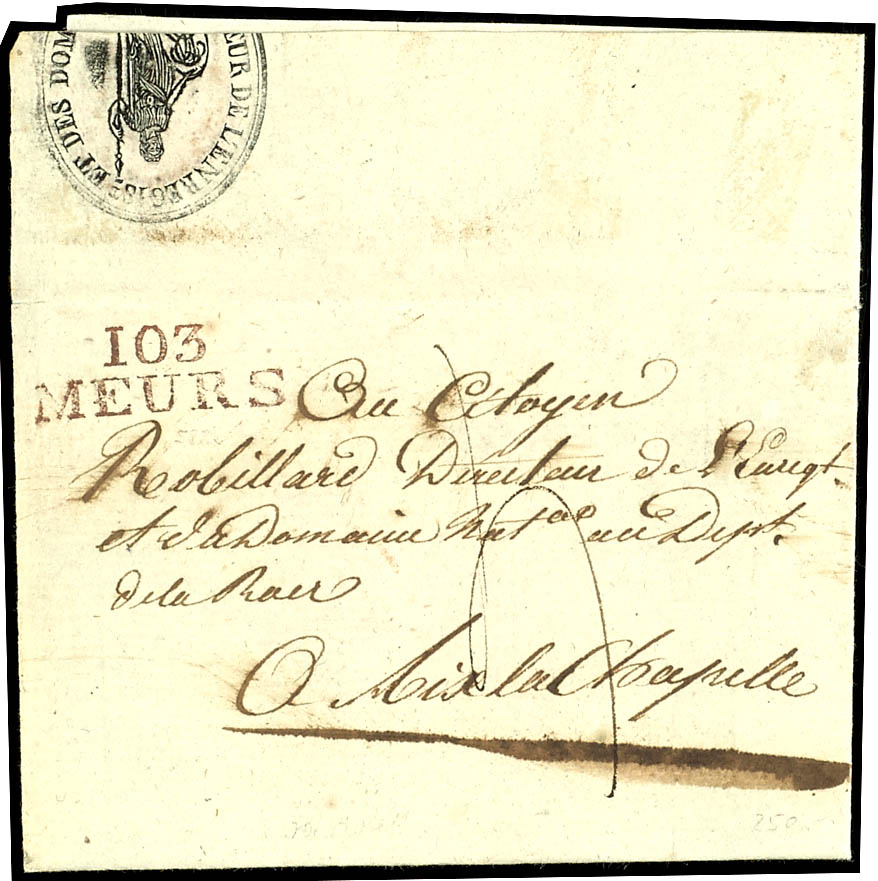 EUR DE L'ENREGIST ET DES DOM
103
MEURS
Au Citoyen
Robillard Directeur de l'Enregt.
et du Domaine Natal au Dept.
de la Roer
A Aix la Chapelle
250